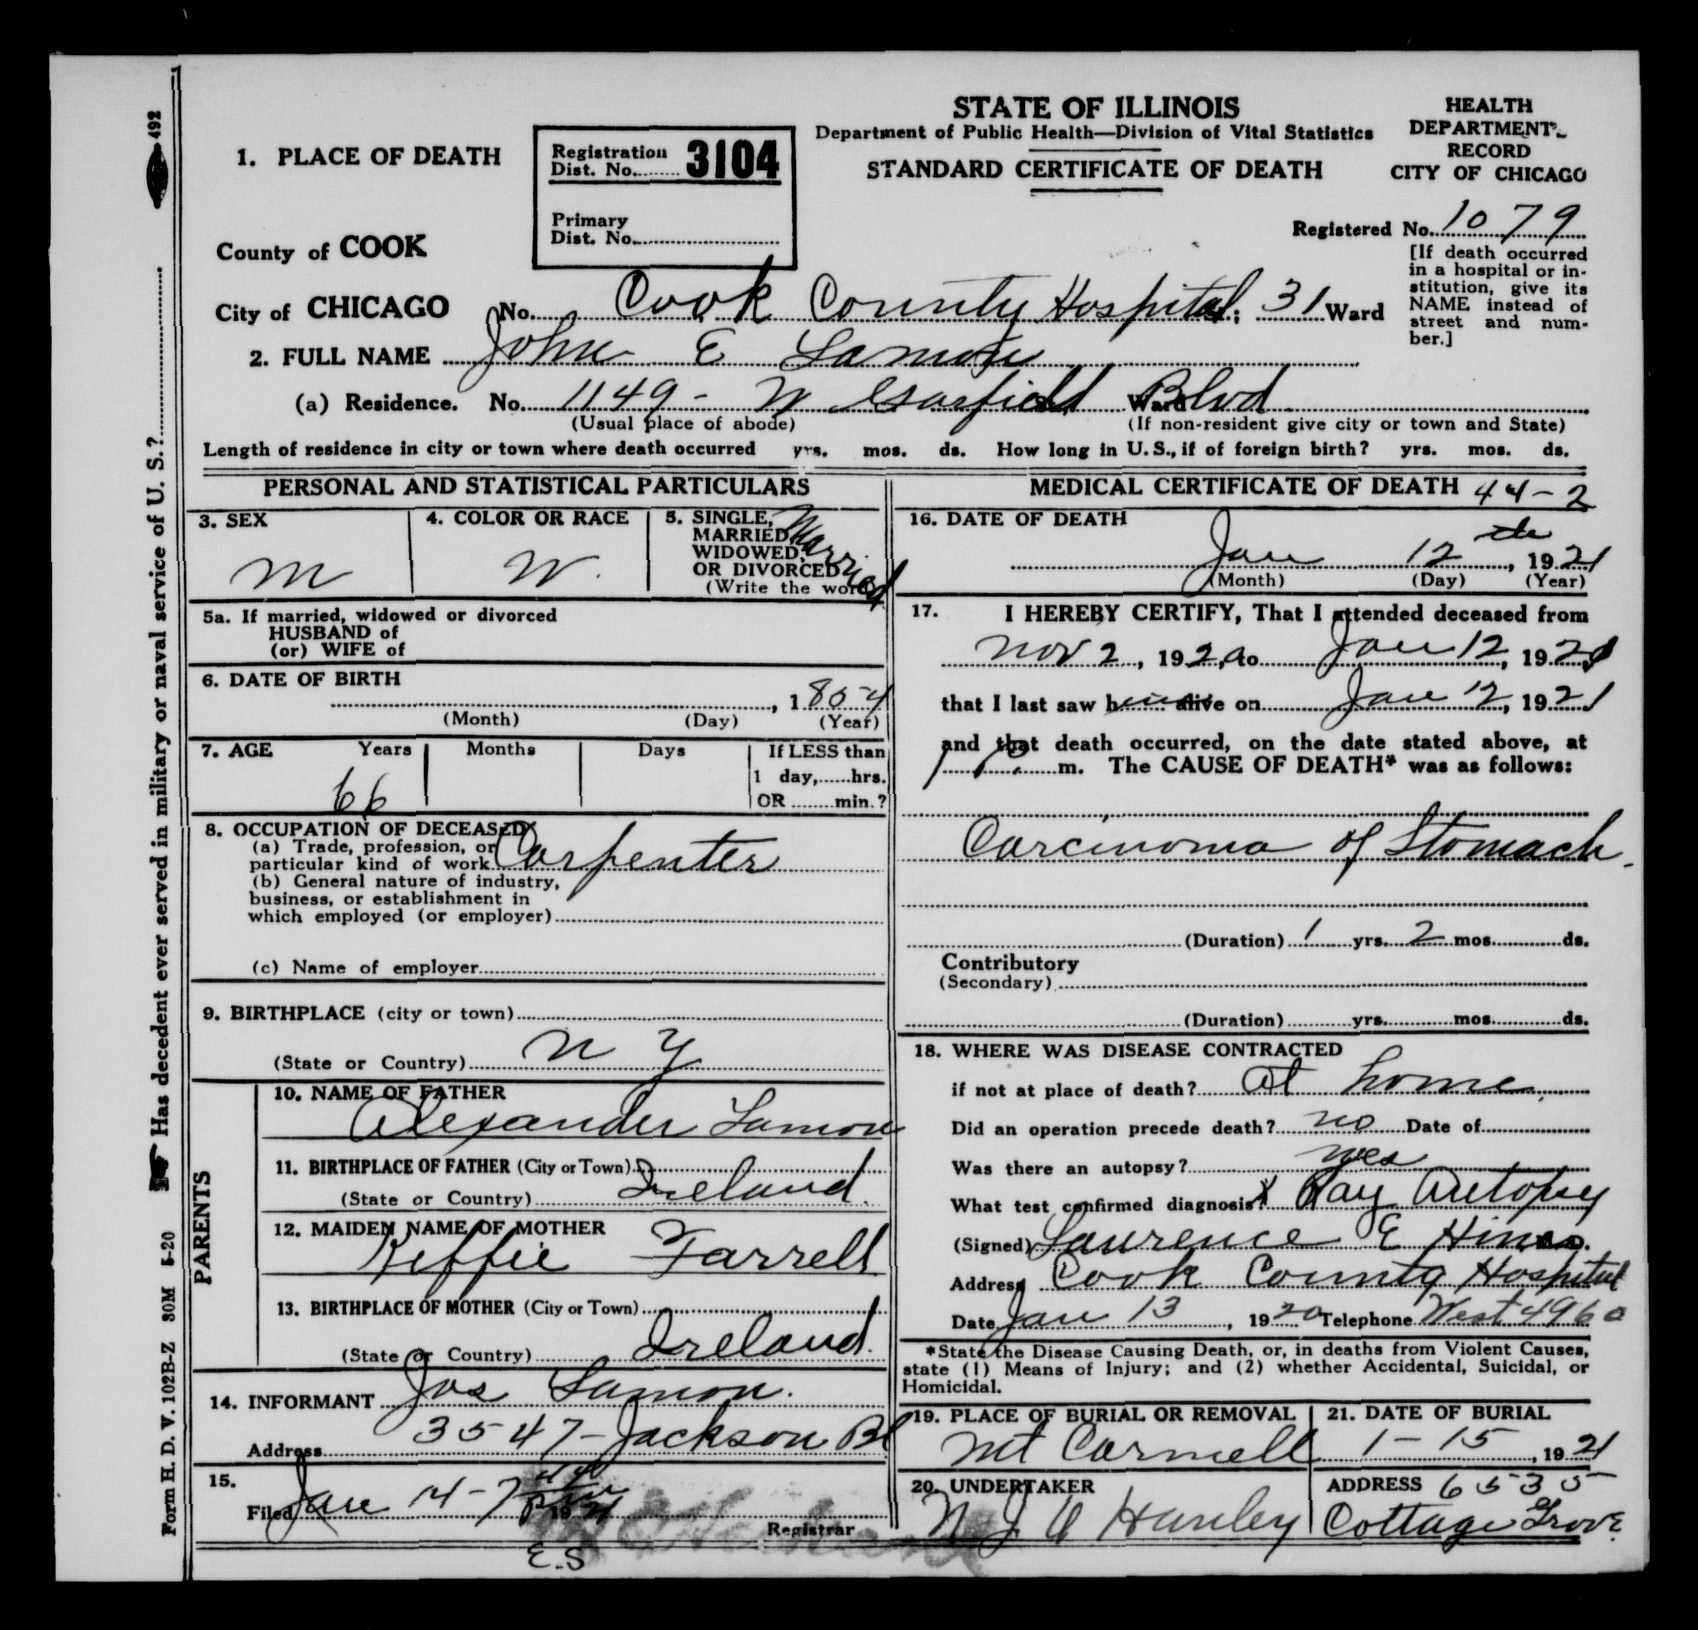 STATE OF ILLINOIS
Department of Public Health—Division of Vital Statistics
STANDARD CERTIFICATE OF DEATH
HEALTH
DEPARTMENT
RECORD
CITY OF CHICAGO
1. PLACE OF DEATH
Registration
Dist. No. 3104
Primary
Dist. No.
Registered No. 1079
[If death occurred
in a hospital or in-
stitution, give its
NAME instead of
street and num-
ber.]
County of COOK
City of CHICAGO No. Cook County Hospital St.; 31 Ward
2. FULL NAME John E Lamon
(a) Residence. No. 1149 - W Garfield Ward Blvd
(Usual place of abode) (If non-resident give city or town and State)
Length of residence in city or town where death occurred yrs. mos. ds. How long in U. S., if of foreign birth? yrs. mos. ds.
PERSONAL AND STATISTICAL PARTICULARS
3. SEX
M
4. COLOR OR RACE
W.
5. SINGLE,
MARRIED,
WIDOWED,
OR DIVORCED
(Write the word)
Married
5a. If married, widowed or divorced
HUSBAND of
(or) WIFE of
6. DATE OF BIRTH
, 1854
(Month) (Day) (Year)
7. AGE Years Months Days If LESS than
1 day,......hrs.
66
OR ........min.?
8. OCCUPATION OF DECEASED
(a) Trade, profession, or
particular kind of work Carpenter
(b) General nature of industry,
business, or establishment in
which employed (or employer)
(c) Name of employer
9. BIRTHPLACE (city or town)
(State or Country) N Y
PARENTS
10. NAME OF FATHER
Alexander Lamon
11. BIRTHPLACE OF FATHER (City or Town)
(State or Country) Ireland.
12. MAIDEN NAME OF MOTHER
Keffie Farrell
13. BIRTHPLACE OF MOTHER (City or Town)
(State or Country) Ireland.
14. INFORMANT Jos Lamon.
Address 3547 - Jackson Bl
15.
Filed Jan 14 - 19 21
Registrar
E.S
MEDICAL CERTIFICATE OF DEATH 44-2
16. DATE OF DEATH
Jan 12th, 1921
(Month) (Day) (Year)
17. I HEREBY CERTIFY, That I attended deceased from
Nov 2, 1920, to Jan 12, 1921
that I last saw him alive on Jan 12, 1921
and that death occurred, on the date stated above, at
1 P. m. The CAUSE OF DEATH* was as follows:
Carcinoma of Stomach.
(Duration) 1 yrs. 2 mos. ds.
Contributory
(Secondary)
(Duration) yrs. mos. ds.
18. WHERE WAS DISEASE CONTRACTED
if not at place of death? At home
Did an operation precede death? no Date of
Was there an autopsy? yes
What test confirmed diagnosis? X Ray Autopsy
(Signed) Laurence E Hines.
Address Cook County Hospital
Date Jan 13, 1920 Telephone West 4960
*State the Disease Causing Death, or, in deaths from Violent Causes,
state (1) Means of Injury; and (2) whether Accidental, Suicidal, or
Homicidal.
19. PLACE OF BURIAL OR REMOVAL
Mt Carmell
21. DATE OF BURIAL
1 - 15, 1921
20. UNDERTAKER
Hanley
ADDRESS 6535
Cottage Grove
492
Has decedent ever served in military or naval service of U. S.?
Form H. D. V. 102B-Z 30M 5-20